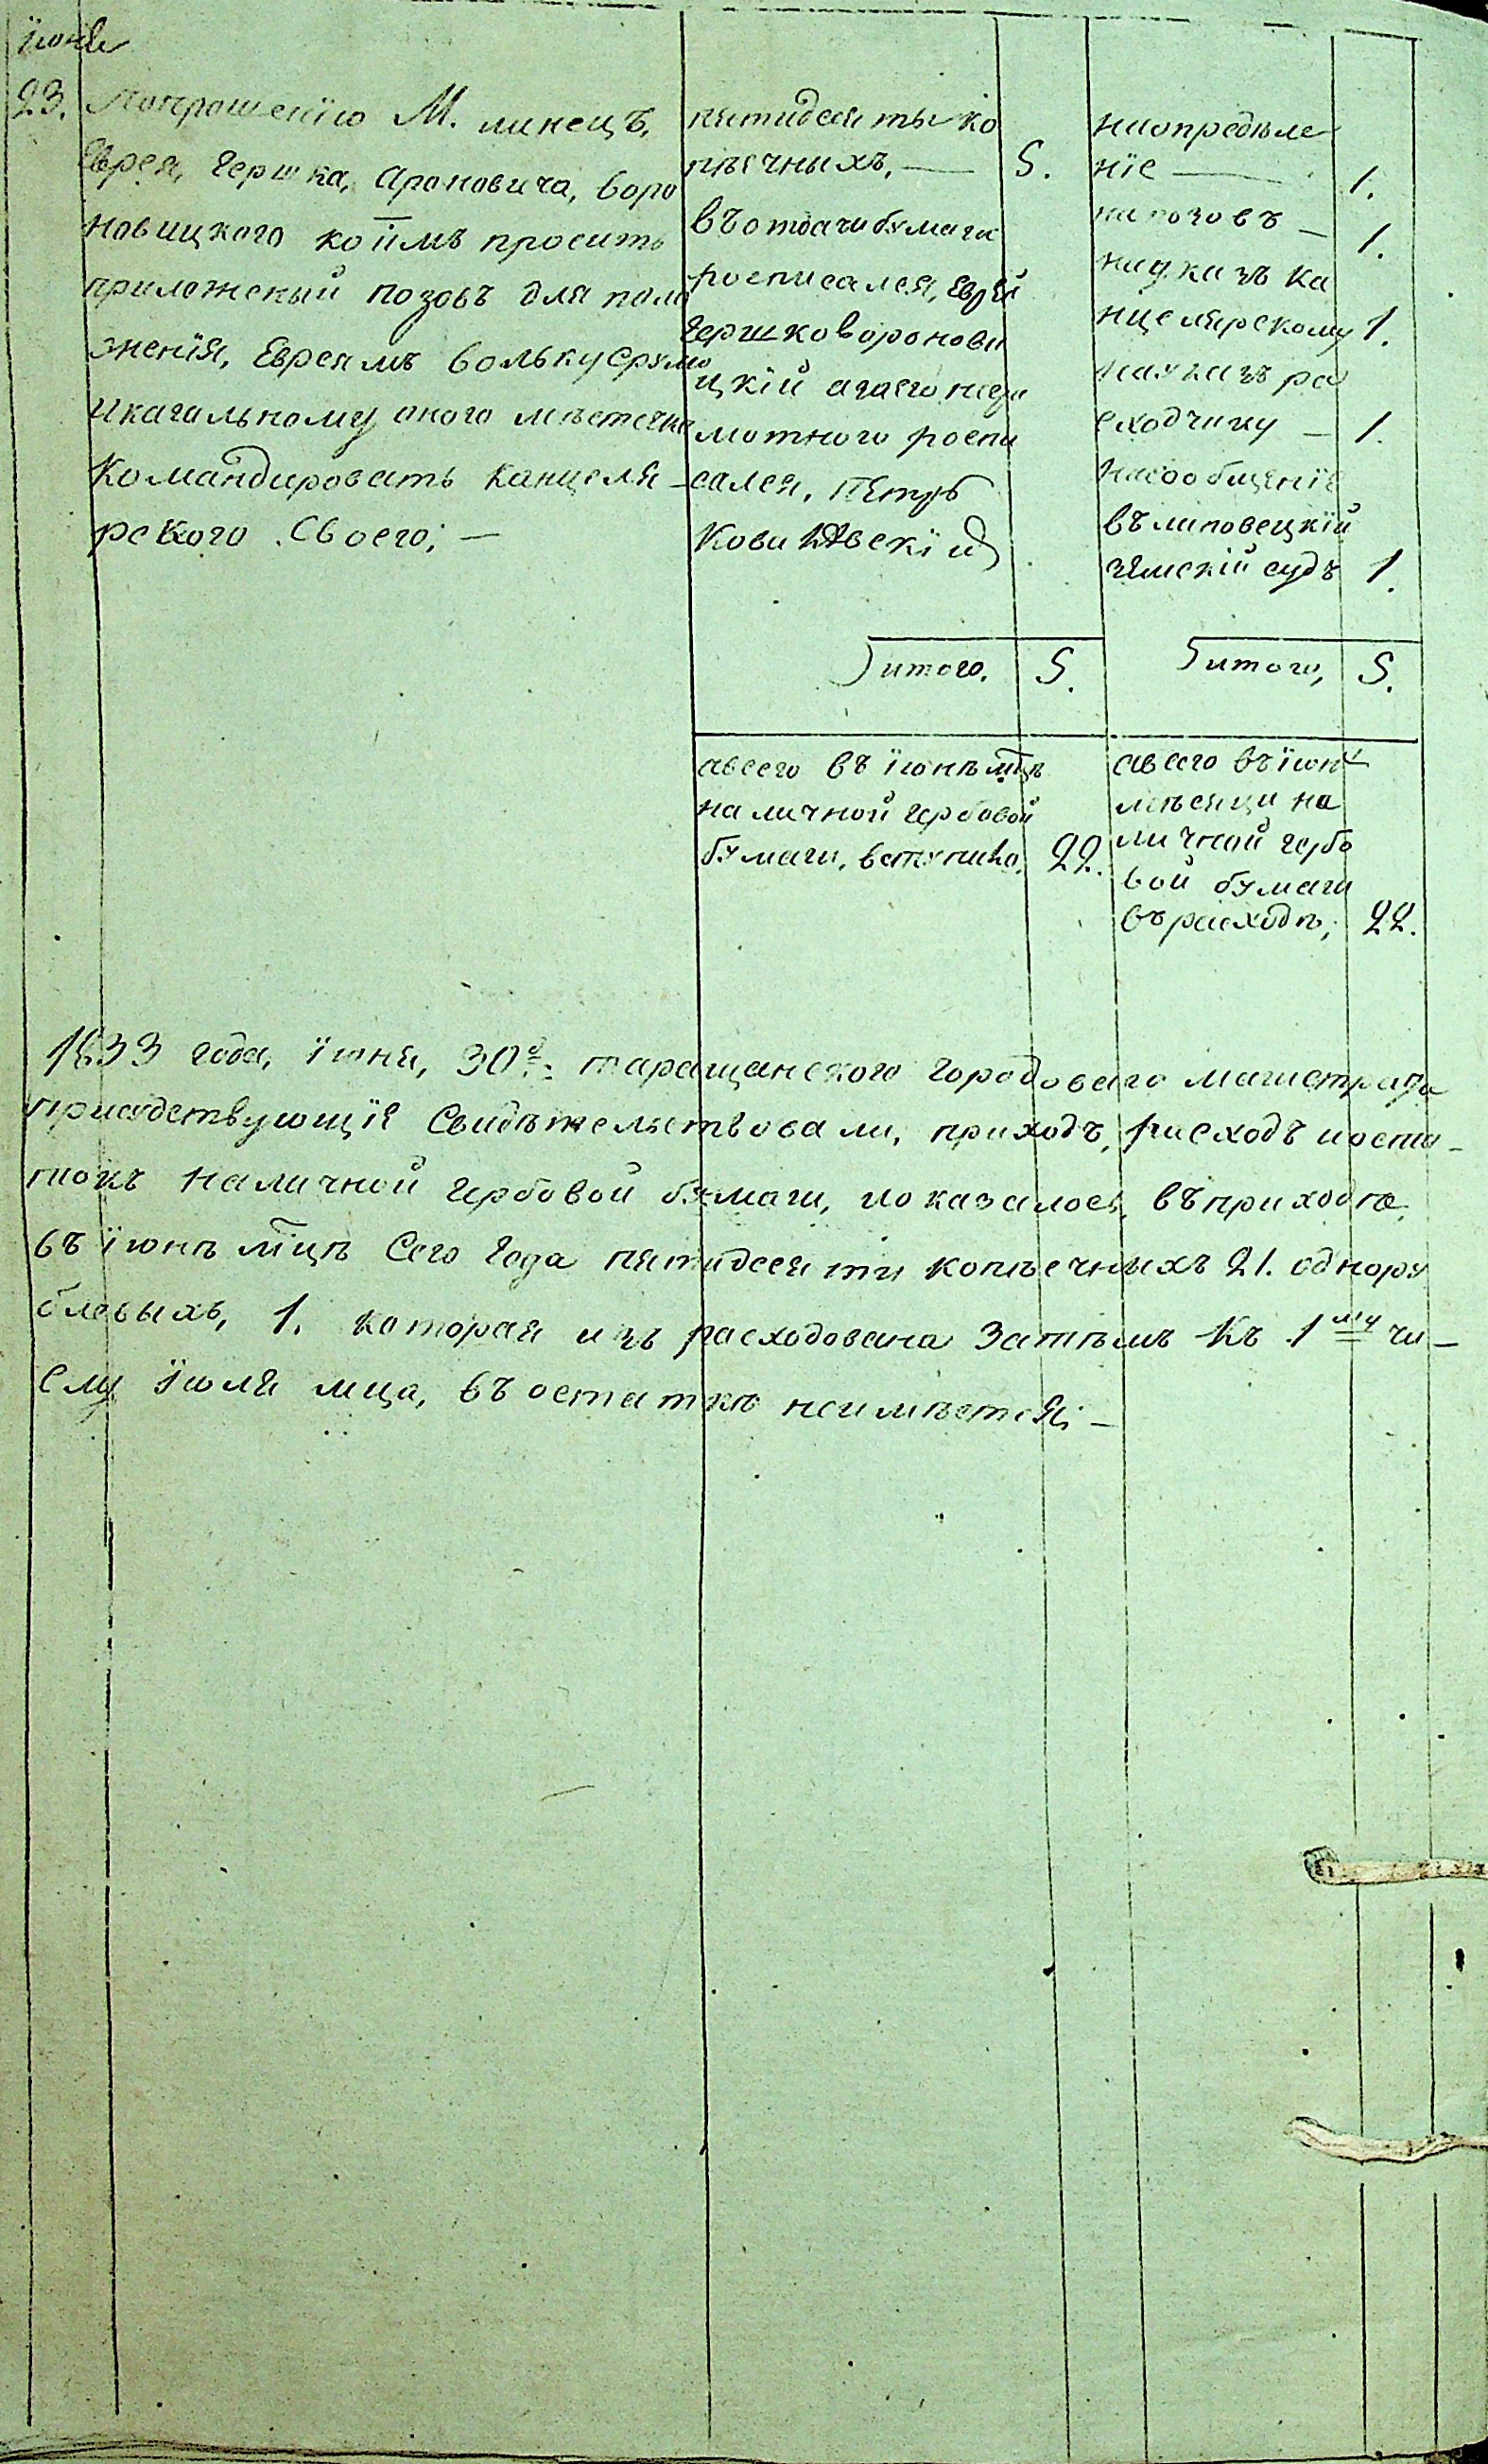 їюня
23.
Попрошенїю М. линецъ,
Еврея, Гершка, Ароновича, воро
новицкого коимъ проситъ
приложеный позовъ для поло
женїя, Евреямъ волькусрулю
икагальному оного мѣстечка
Командировать канцеля-
рского своего; —
пятидесяты ко
пѣечныхъ, — 5.
въотдачи бумаги
росписался, Еврей
Гершко воронови
цкїй азаего негра
мотного роспи
сался, Петръ
итого, 5.
авсего въ їюнѣ мцѣ
наличной гербовой
бумаги, вступило, 22.
наопредѣле
нїе — 1.
напозовъ — 1.
науказъ ка
нцелярскому 1.
науказъ ра
сходчику — 1.
насообщенїе
въ липовецкїй
земскїй судъ 1.
итого, 5.
авсего въїюнѣ
мѣсяци на
личной гербо
вой бумаги
въ расходѣ, 22.
1833 года, їюня, 30 д: таращанского городоваго магистрата
присудствующїе свидѣтельствовали, приходъ, расходъ иоста-
токъ наличной гербовой бумаги, показалось, въприходѣ,
въ їюнѣ мцѣ сего года пятидесяти копѣечныхъ 21. однору
блевыхъ, 1. которая изъ расходована затѣмъ къ 1му чи-
слу їюля мца, въ остаткѣ неимѣется; —